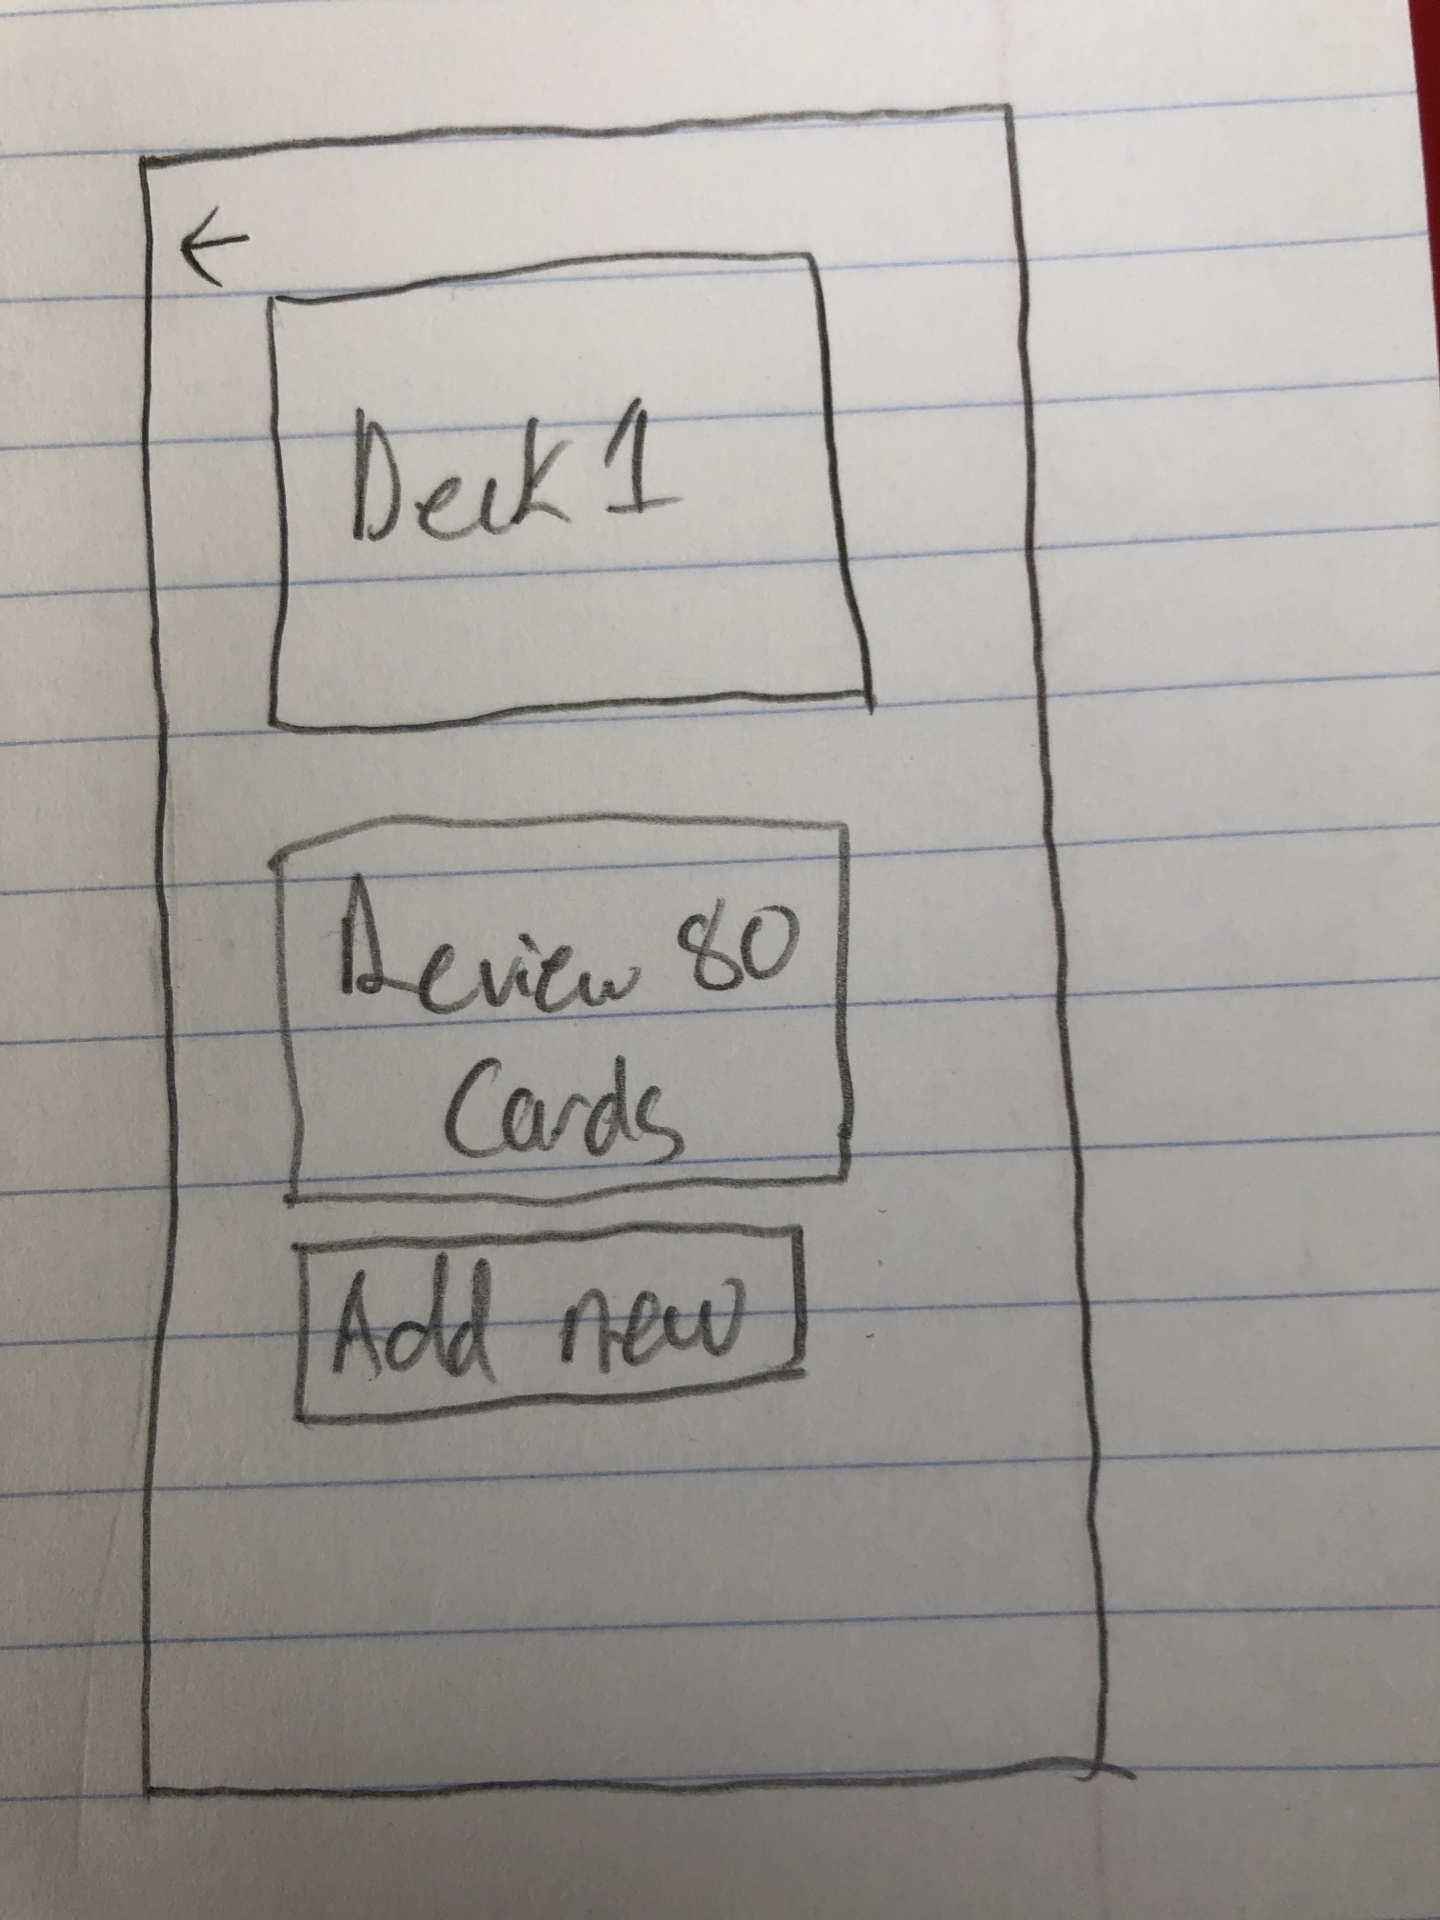 ←
Deck 1
Review 80
Cards
Add new